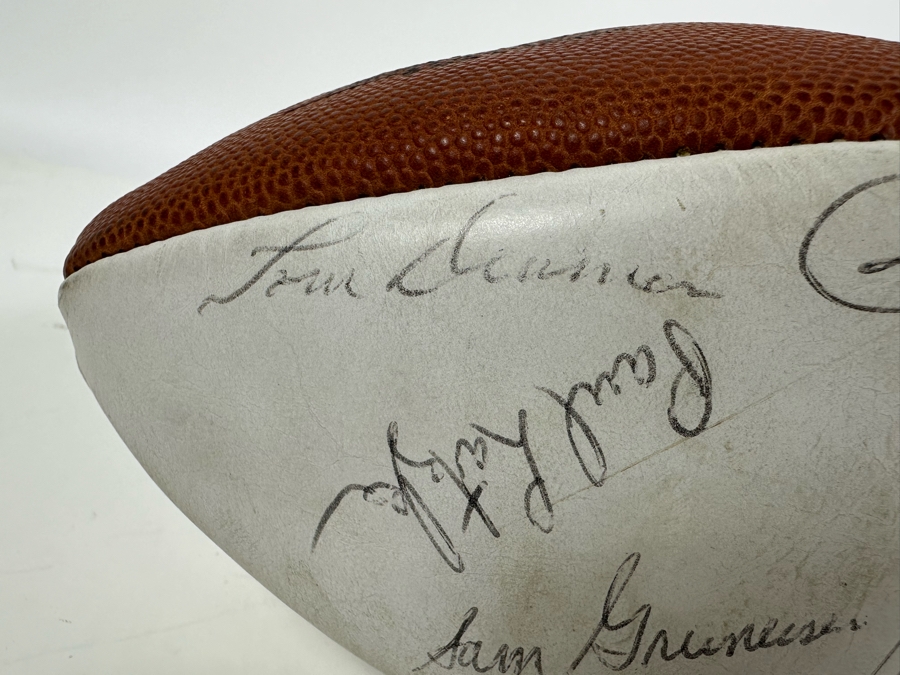 Tom Dimmer
Paul Latzke
Sam Gruneisen